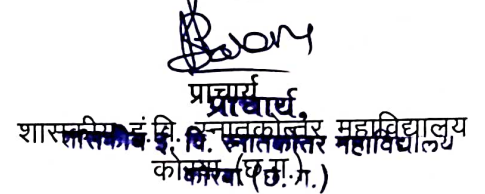 प्राचार्य
प्राचार्य,
शासकीय इं.वि. स्नातकोत्तर महाविद्यालय
शासकीय इं. वि. स्नातकोत्तर महाविद्यालय
कोरबा (छ.ग.)
कोरबा (छ. ग.)